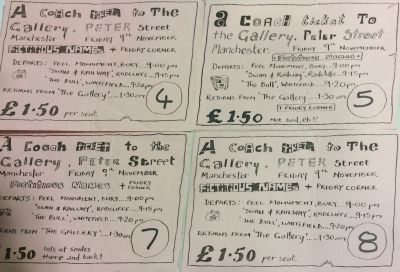 A Coach TICKET to The
Gallery, PETER Street
Manchester FRIDAY 9th November
FICTITIOUS NAMES + PRIORY CORNER
DEPARTS: PEEL MONUMENT, BURY... 9:00 pm
'SWAN & RAILWAY', RADCLIFFE... 9:15 pm
'THE BULL', WHITEFIELD... 9:20 pm
RETURNS FROM 'The GALLERY'... 1:30 am
£1.50 per seat.
4
a Coach ticket To
the Gallery, Peter Street
Manchester. FRIDAY 9th NOVEMEMBER
Fictitious Names
DEPARTS: PEEL MONUMENT, BURY... 9:00 pm
'Swan & Railway', Radcliffe... 9:15 pm
'The Bull', WHITEFIELD... 9:20 pm
RETURNS From 'The Gallery'... 1:30 am
+ PRIORY CORNER
£1.50 Not bad, eh!!
5
A Coach TICKET to the
Gallery, PETER Street
Manchester FRIDAY 9th November
Fictitious Names + PRIORY CORNER
DEPARTS: PEEL MONUMENT, BURY... 9:00 pm
'SWAN & RAILWAY', RADCLIFFE... 9:15 pm
'THE BULL', WHITEFIELD... 9:20 pm
RETURNS FROM 'The GALLERY'... 1:30 am
£1.50 lots of smiles
there and back!
7
A Coach TICKET to The
Gallery, PETER Street
Manchester FRIDAY 9th November
FICTITIOUS NAMES + PRIORY CORNER
DEPARTS: PEEL MONUMENT, BURY... 9:00 pm
'SWAN & RAILWAY', RADCLIFFE... 9:15 pm
'THE BULL', WHITEFIELD... 9:20 pm
RETURNS FROM 'The Gallery'... 1:30 am
£1.50 per seat.
8